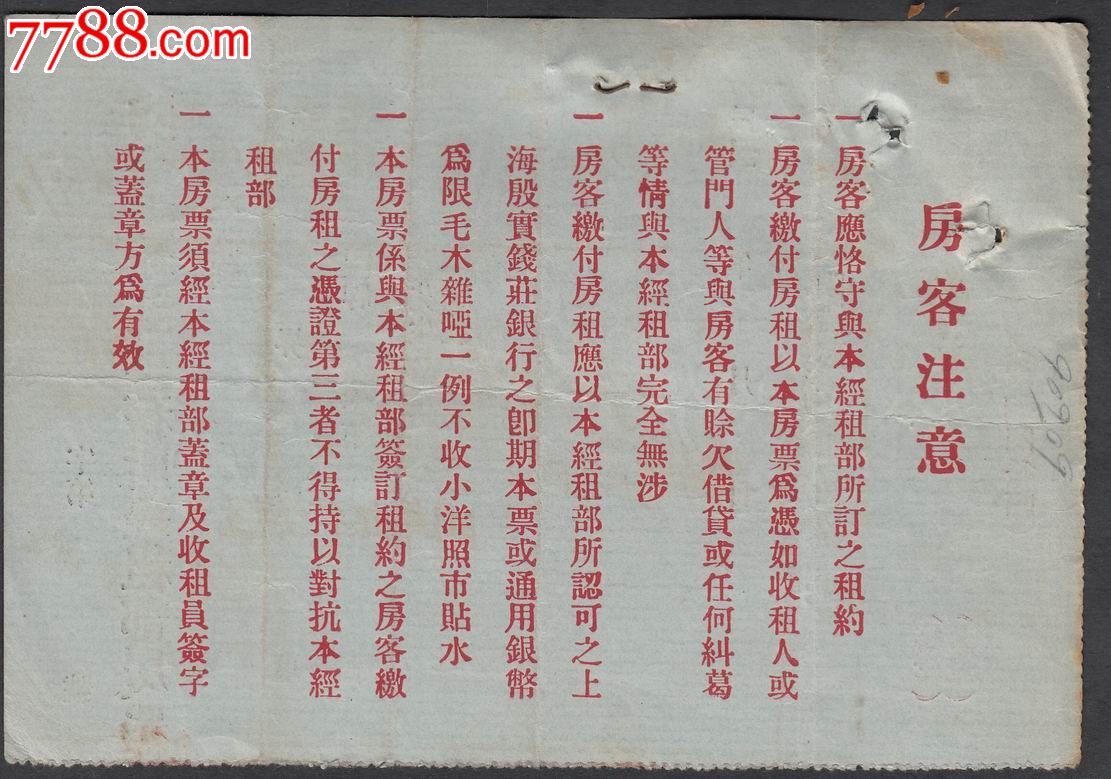 7788.com
房客注意
一 房客應恪守與本經租部所訂之租約
一 房客繳付房租以本房票爲憑如收租人或
管門人等與房客有賒欠借貸或任何糾葛
等情與本經租部完全無涉
一 房客繳付房租應以本經租部所認可之上
海殷實錢莊銀行之卽期本票或通用銀幣
爲限毛木雜啞一例不收小洋照市貼水
一 本房票係與本經租部簽訂租約之房客繳
付房租之憑證第三者不得持以對抗本經
租部
一 本房票須經本經租部蓋章及收租員簽字
或蓋章方爲有效